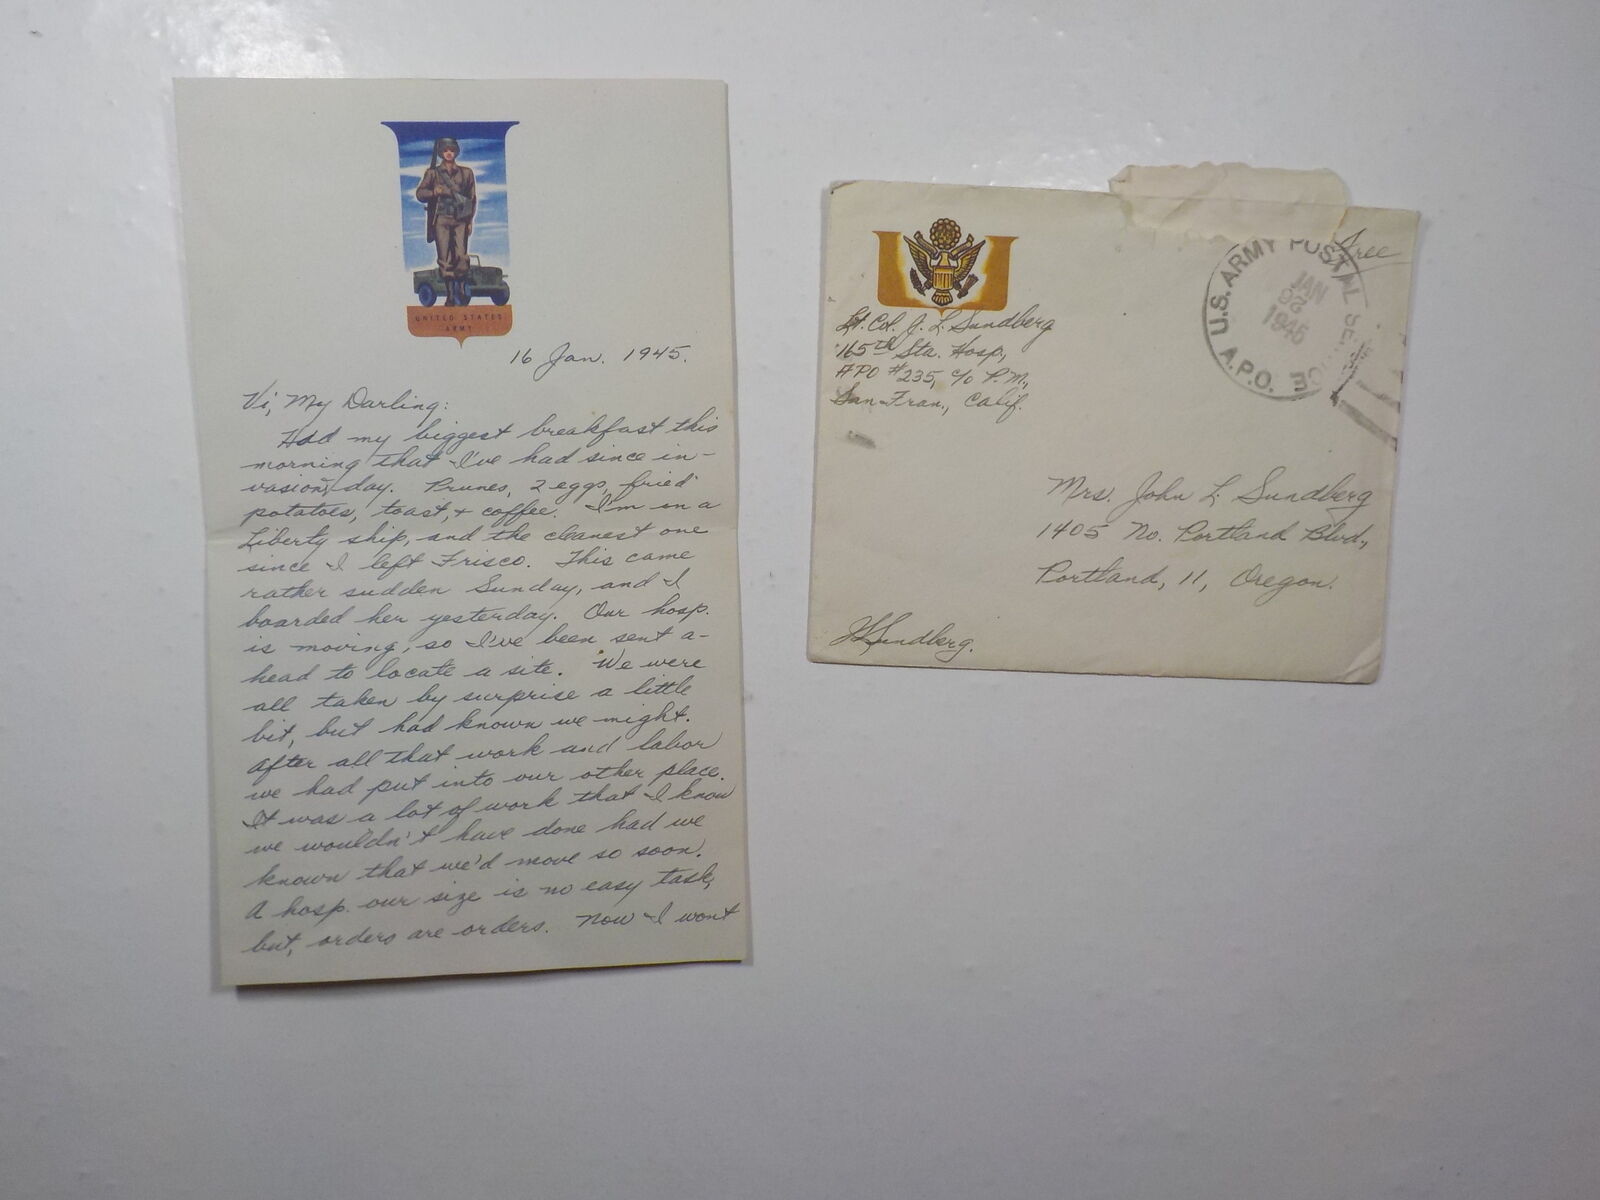 UNITED STATES
ARMY
16 Jan. 1945.
Vi, My Darling:
Had my biggest breakfast this
morning that I've had since in-
vasion day. Prunes, 2 eggs, fried
potatoes, toast, & coffee. I'm in a
Liberty ship, and the cleanest one
since I left Frisco. This came
rather sudden Sunday, and I
boarded her yesterday. Our hosp.
is moving, so I've been sent a-
head to locate a site. We were
all taken by surprise a little
bit, but had known we might.
After all that work and labor
we had put into our other place.
It was a lot of work that I know
we wouldn't have done had we
known that we'd move so soon.
A hosp. our size is no easy task,
but, orders are orders. Now I wont
Lt. Col. J. L. Sundberg
165th Sta. Hosp.,
APO #235, c/o P.M.,
San Fran., Calif.
Free
U.S. ARMY POSTAL SERVICE
A.P.O.
JAN
1945
Mrs. John L. Sundberg
1405 No. Portland Blvd.,
Portland, 11, Oregon.
JLSundberg.